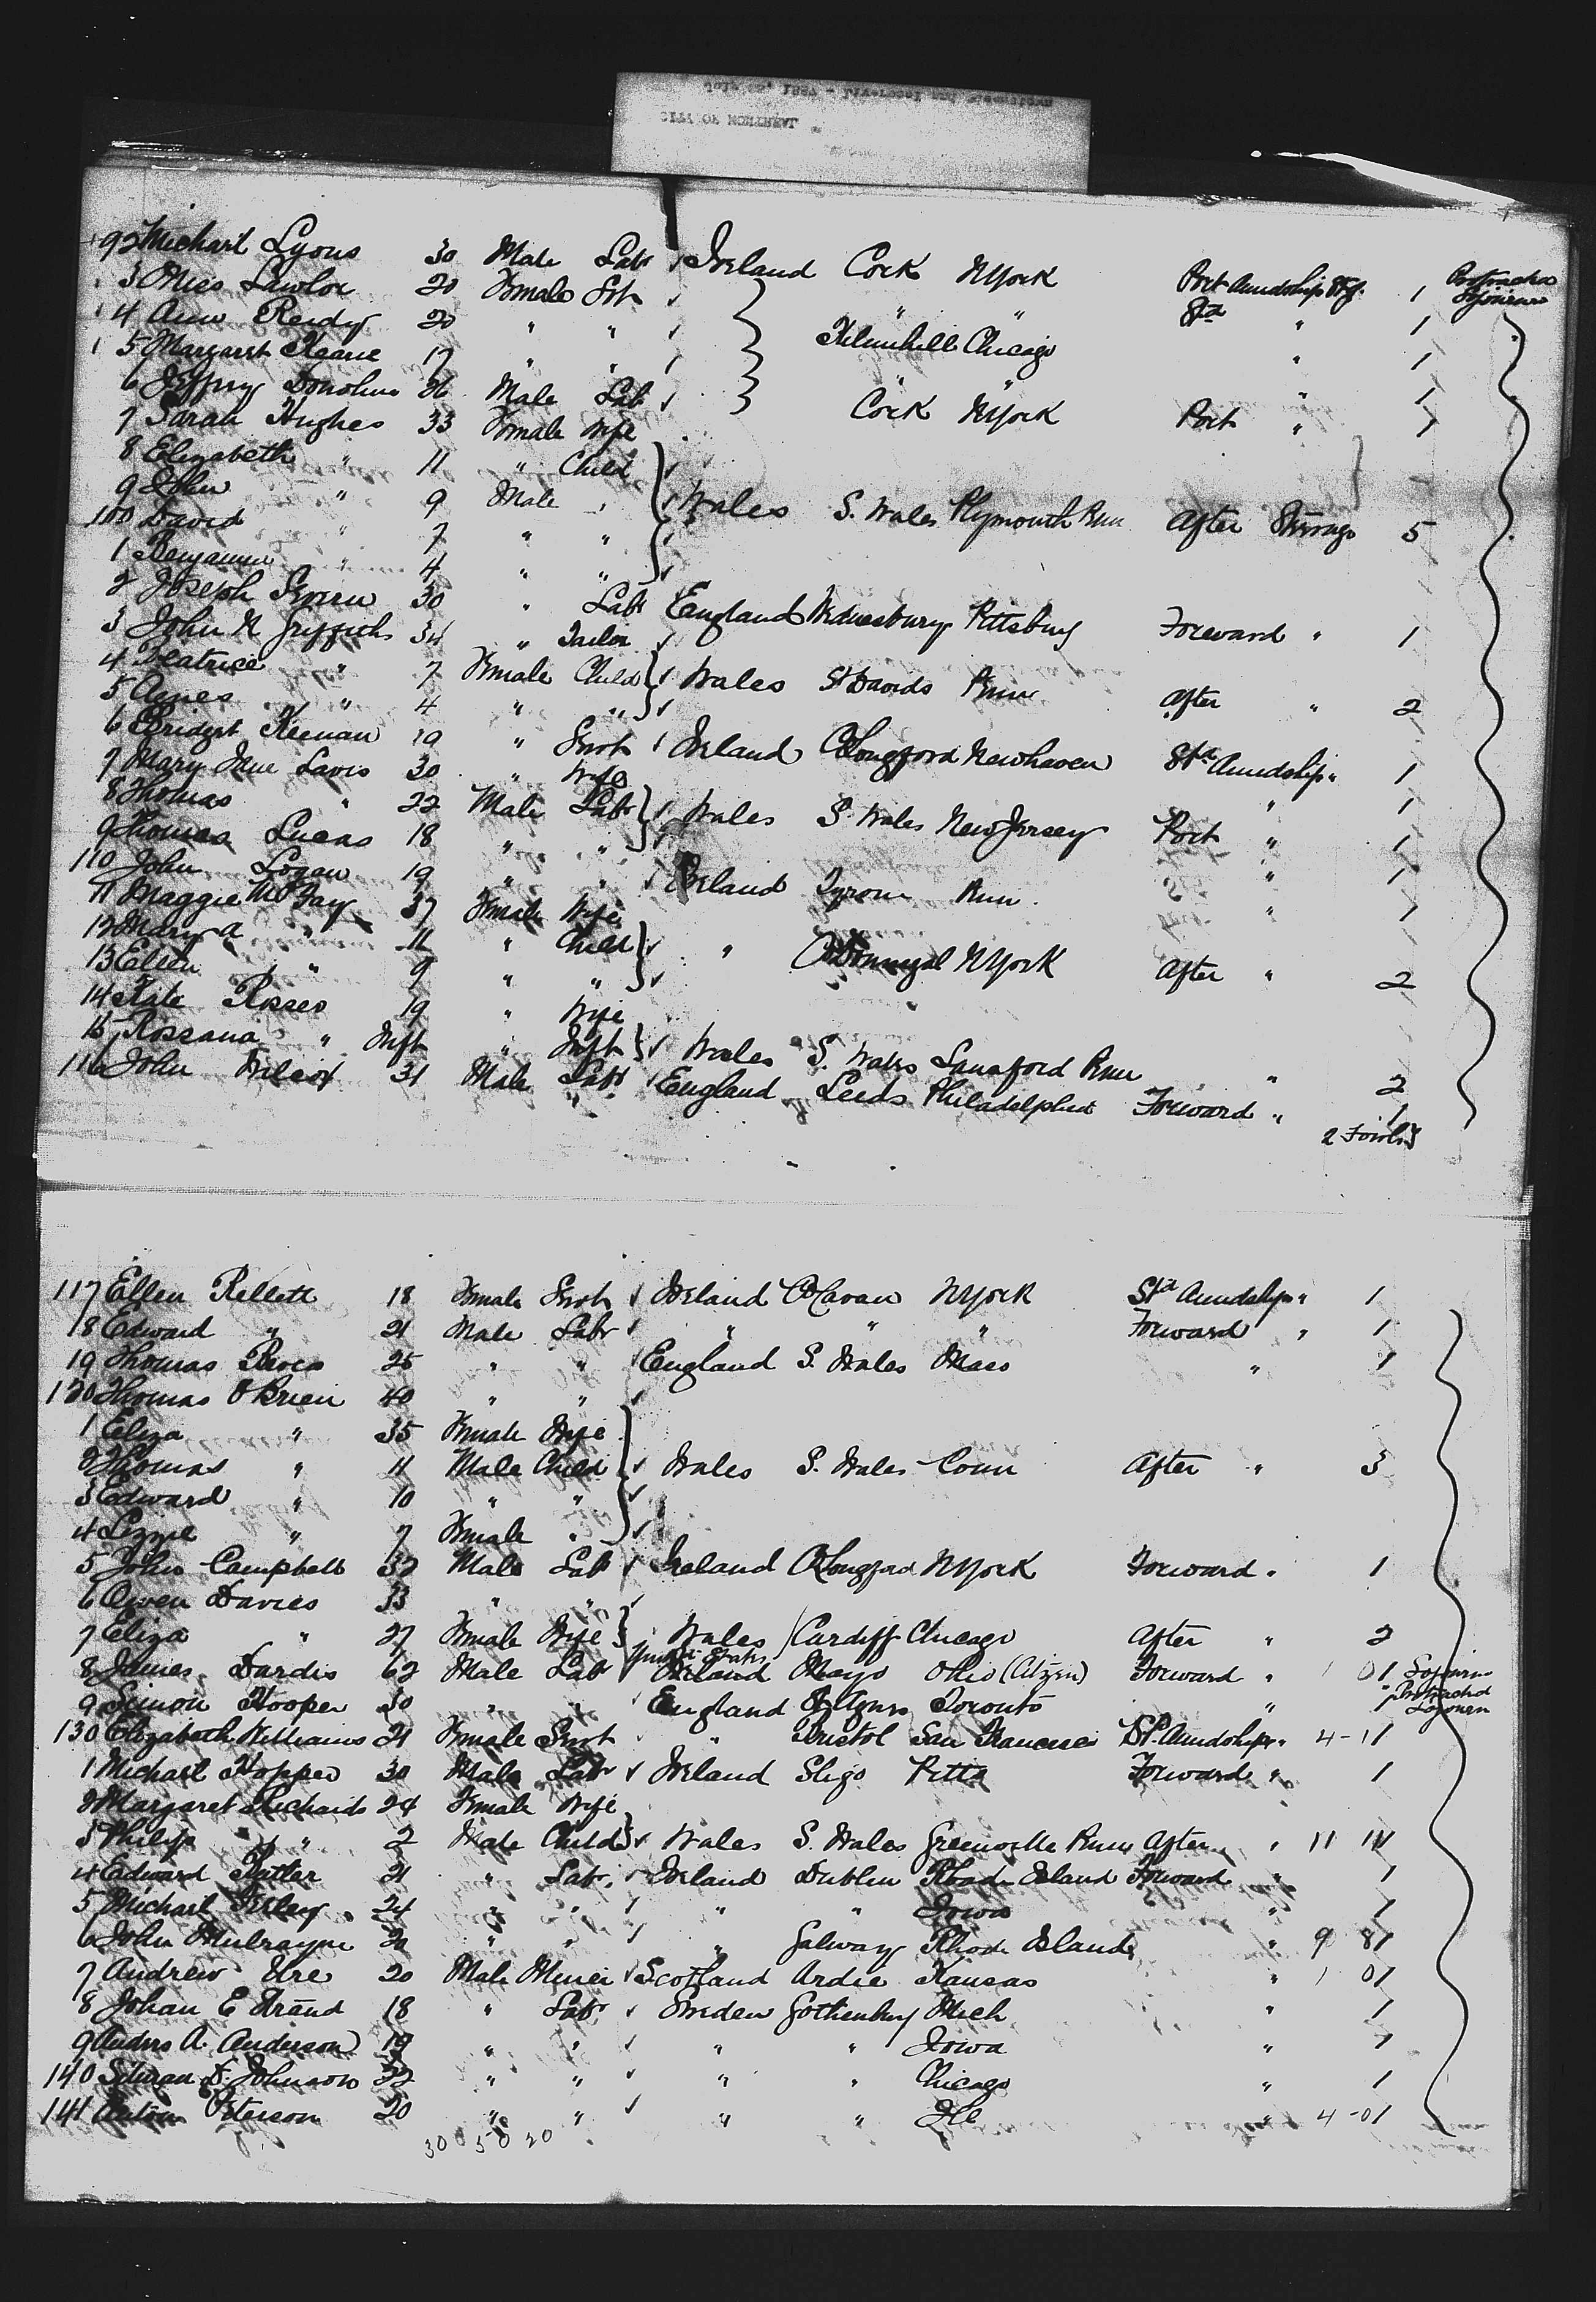 CITY OF MONTREAL
92 Michael Lyons 30 Male Labr ✓ Ireland Cork NYork Port Amidship Stg. 1
3 Lawlor 20 Female Srt ✓ " " Stbd " 1
4 Ann Reidy 20 " " ✓ Chicago " 1
5 Margaret Keane 17 " " ✓ " " " 1
6 Jeffrey Donohue 26 Male Lab ✓ Cork NYork Port " 1
7 Sarah Hughes 33 Female Wife
8 Elizabeth " 11 " Child ✓
9 John " 9 Male " ✓ Wales S. Wales Plymouth Penn After Steerage 5
100 David " 7 " " ✓
1 Benjamin " 4 " " ✓
2 Joseph 30 " Labr England Wednesbury Pittsburg Foreward " 1
3 John N Griffiths 34 " Tailor ✓
4 Beatrice " 7 Female Child ✓ Wales St Davids Penn After " 2
5 Agnes " 4 " " ✓
6 Bridget Keenan 19 " Servt ✓ Ireland Co Longford Newhaven Stbd Amidship " 1
7 Mary Jane Davis 30 " Wife " 1
8 Thomas " 22 Male Labr ✓ Wales S. Wales New Jersey Port " 1
9 Thomas Lucas 18 " " ✓ " 1
110 John Logan 19 " " ✓ Ireland Tyrone Penn " 1
11 Maggie McFay 37 Female Wife
12 Mary A " 11 " Child ✓ " Co Donnegal NYork After " 2
13 Ellen " 9 " " ✓
14 Kate Rosser 19 " Wife
15 Rossana " Inft " Inft ✓ Wales S. Wales Lansford Penn " 2
116 John Wilcox 31 Male Labr ✓ England Leeds Philadelphia Foreward " 1
117 Ellen Rellett 18 Female Servt ✓ Ireland Co Cavan NYork Stbd Amidships " 1
18 Edward " 21 Male Labr ✓ " " " Forward " 1
19 Thomas 25 " " ✓ England S. Wales Mass " 1
120 Thomas O'Brien 40 " " ✓
1 Eliza " 35 Female Wife
2 Thomas " 11 Male Child ✓ Wales S. Wales Conn After " 3
3 Edward " 10 " " ✓
4 Lizzie " 7 Female " ✓
5 John Campbell 32 Male Lab ✓ Ireland Co Longford NYork Forward " 1
6 Owen Davies 33 " " ✓
7 Eliza " 27 Female Wife Wales Cardiff Chicago After " 2
8 James Dardis 62 Male Lab ✓ Ireland Mayo Ohio (Citizen) Forward " 1 01
9 Simon Hooper 30 " " ✓ England St Agnes Toronto " 1 Protracted Sojourn
130 Elizabeth Williams 21 Female Servt " Bristol San Francisco St. Amidships " 4-11
1 Michael Hopper 30 Male Labr ✓ Ireland Sligo Pitts Forward " 1
2 Margaret Richards 24 Female Wife
3 Philip " 2 Male Child ✓ Wales S. Wales Greenville Penn After " 11 11
4 Edward Butler 21 " Lab. ✓ Ireland Dublin Rhode Island Forward " 1
5 Michael 24 " " ✓ " " Iowa " 1
6 John Mulrayne 20 " " ✓ " Galway Rhode Island " 9 81
7 Andrew Ure 20 Male Miner ✓ Scotland Ardie Kansas " 1 01
8 Johan E Strand 18 " Lab. ✓ Sweden Gothenburg Mich " 1
9 Anders A. Anderson 19 " " ✓ " " Iowa " 1
140 Johnson 22 " " ✓ " " Chicago " 1
141 Anton Peterson 20 " " ✓ " " Ill " 4-01
30 5 0 20